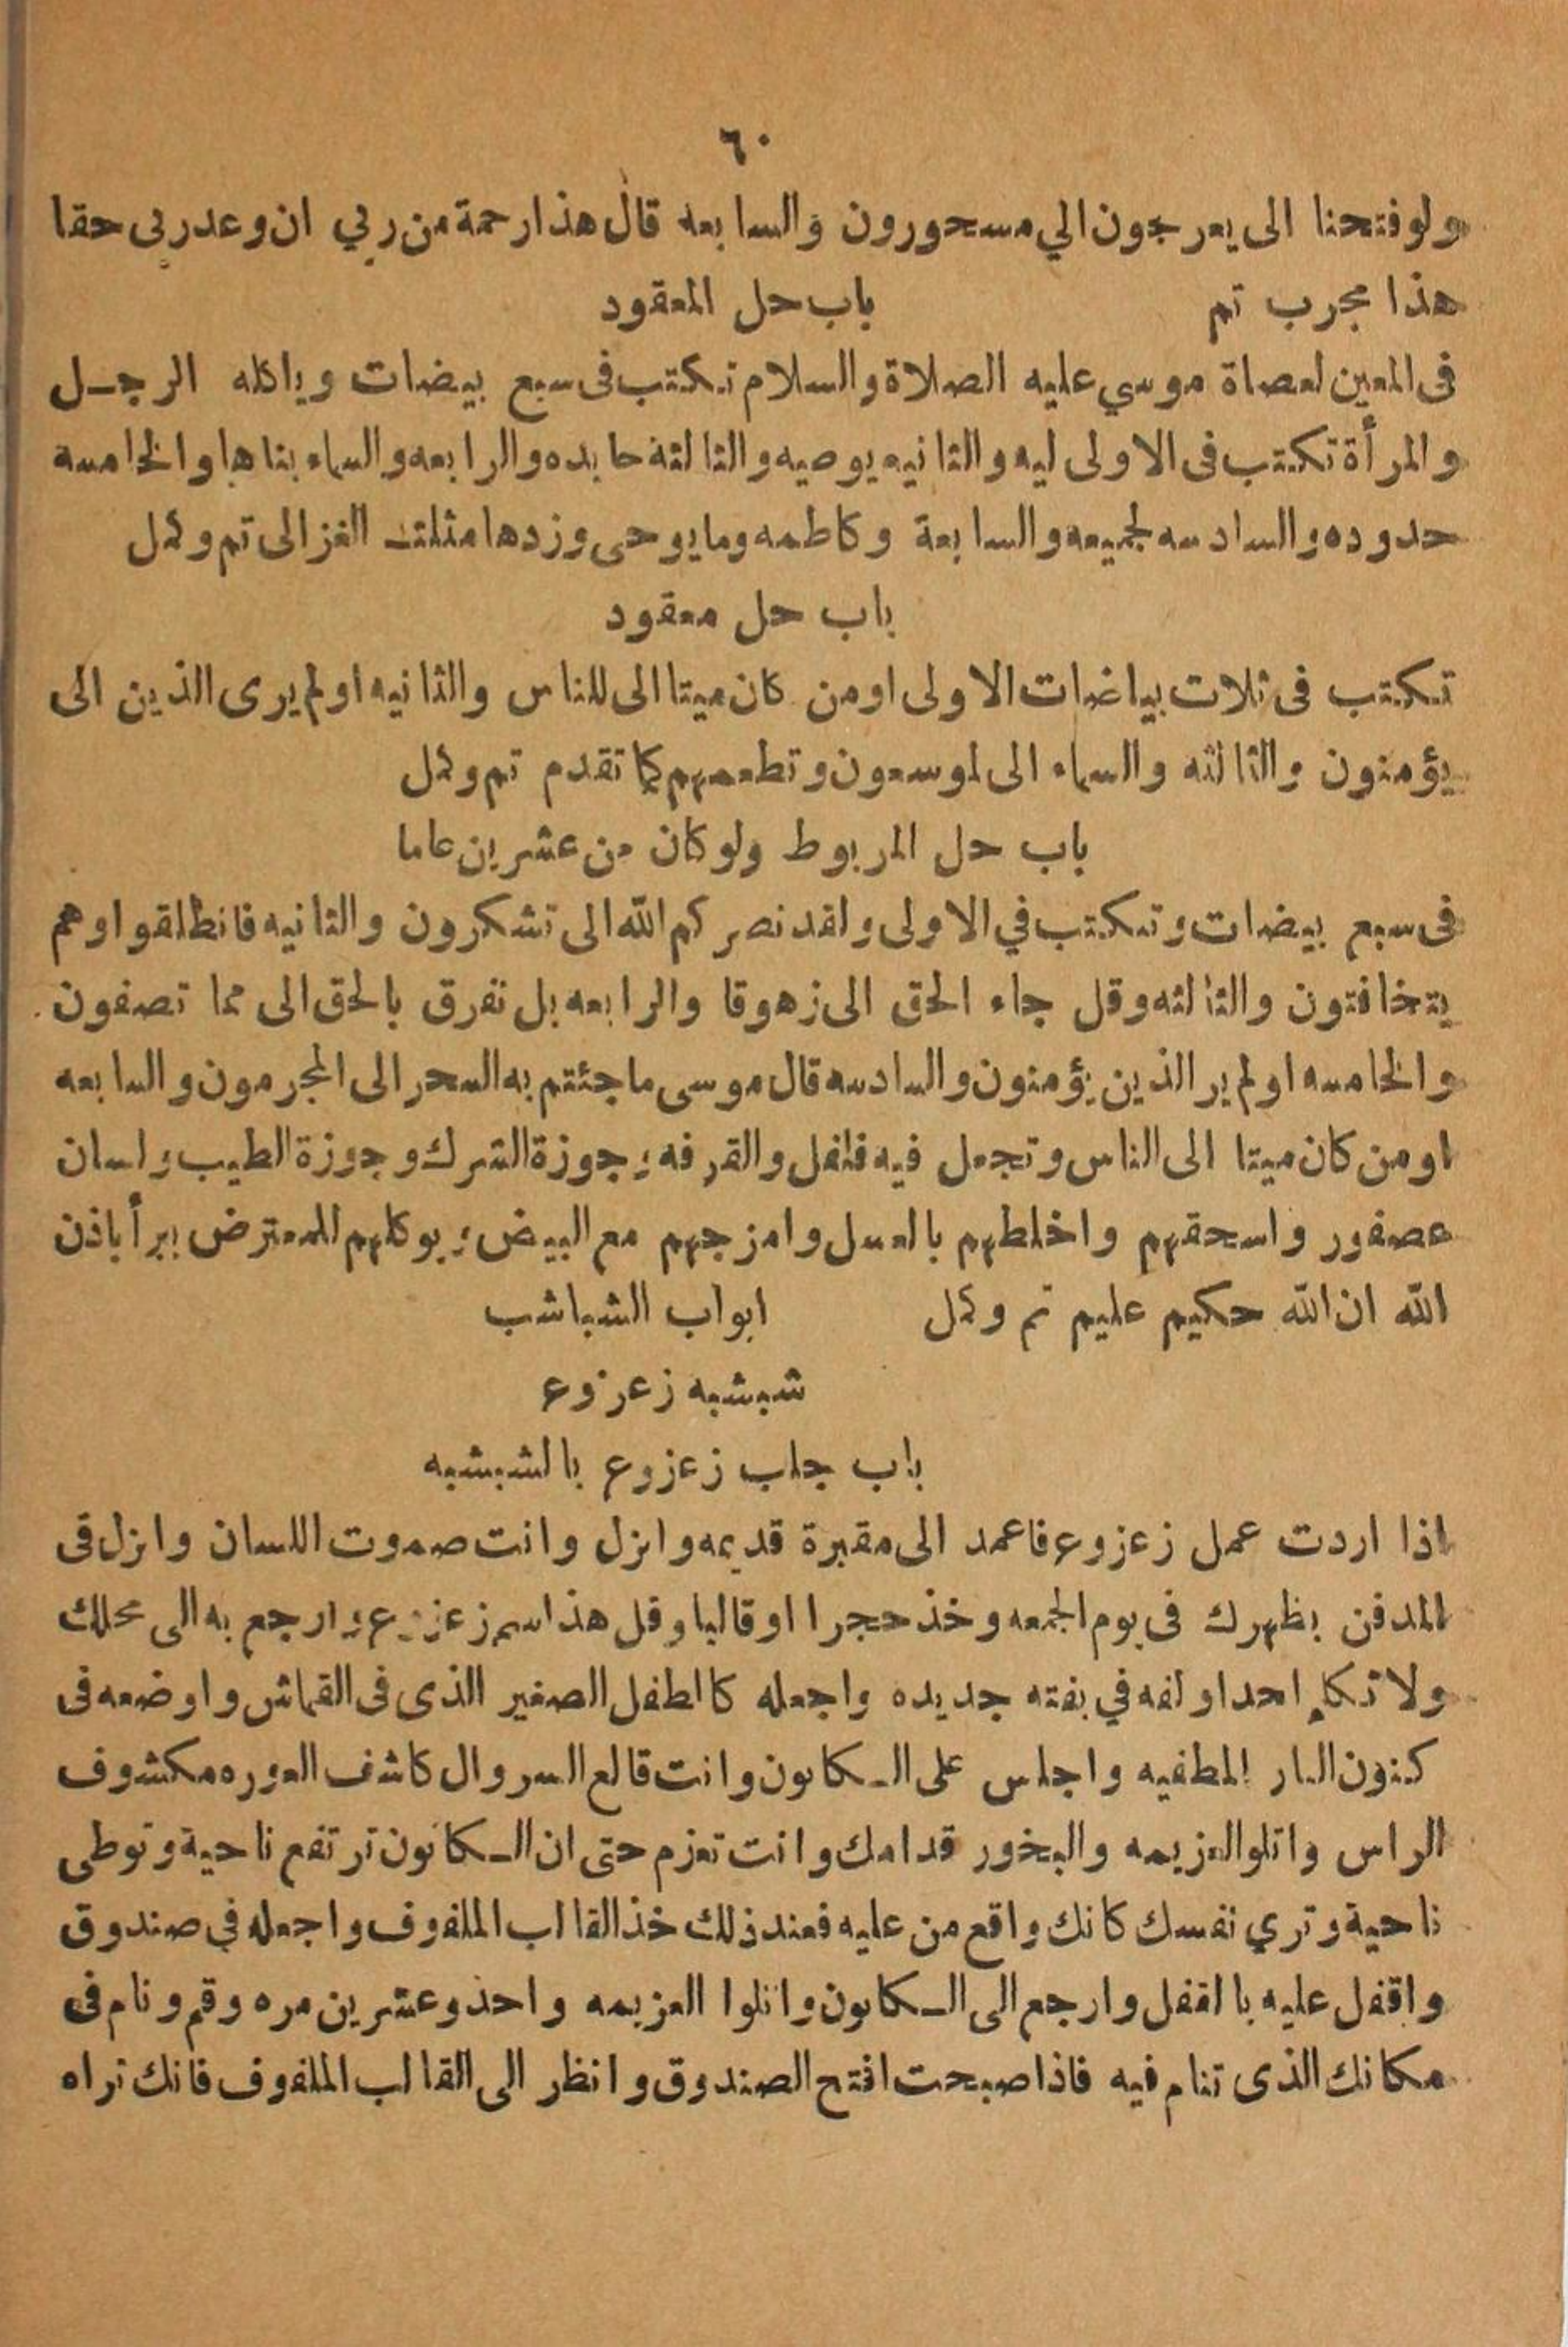 ٦٠
ولو فتحنا الى يعرجون الي مسحورون والسابعه قال هذا رحمة من ربي ان وعد ربى حقا
هذا مجرب تم باب حل المعقود
فى المعين لعصاة موسي عليه الصلاة والسلام تكتب فى سبع بيضات وياكله الرجل
والمرأة تكتب فى الاولى ليه والثانيه يوصيه والثالثة حابده والرابعه والسماء بناها والخامسه
حدوده والسادسه لجميعه والسابعة وكاظمه وما يوحى وزدها مثلث الغزالى تم وكمل
باب حل معقود
تكتب فى ثلات بياضات الاولى اومن كان ميتا الى للناس والثانيه اولم يرى الذين الى
يؤمنون والثالثه والسماء الى لموسعون وتطعمهم كما تقدم تم وكمل
باب حل المربوط ولو كان من عشرين عاما
فى سبع بيضات وتكتب في الاولى ولقد نصركم الله الى تشكرون والثانيه فانطلقوا وهم
يتخافتون والثالثه وقل جاء الحق الى زهوقا والرابعه بل نفرق بالحق الى مما تصفون
والخامسه اولم ير الذين يؤمنون والسادسه قال موسى ما جئتم به السحر الى المجرمون والسابعه
اومن كان ميتا الى الناس وتجعل فيه فلفل والقرفه وجوزة الشرك وجوزة الطيب ولسان
عصفور واسحقهم واخلطهم بالعسل وامزجهم مع البيض ويوكلهم للمعترض يبرأ باذن
الله ان الله حكيم عليم تم وكمل ابواب الشباشب
شبشبه زعزوع
باب جلب زعزوع بالشبشبه
اذا اردت عمل زعزوع فاعمد الى مقبرة قديمه وانزل وانت صموت اللسان وانزل فى
المدفن بظهرك فى يوم الجمعه وخذ حجرا او قالبا وقل هذا اسم زعزوع وارجع به الى محلك
ولا تكلم احدا ولفه في بفته جديده واجعله كالطفل الصغير الذى فى القماش واوضعه فى
كنون النار المطفيه واجلس على الكانون وانت قالع السروال كاشف العوره مكشوف
الراس واتلو العزيمه والبخور قدامك وانت تعزم حتى ان الكانون ترتفع ناحية وتوطى
ناحية وتري نفسك كانك واقع من عليه فعند ذلك خذ القالب الملفوف واجعله في صندوق
واقفل عليه بالقفل وارجع الى الكانون واتلوا العزيمه واحد وعشرين مره وقم ونام فى
مكانك الذى تنام فيه فاذا صبحت افتح الصندوق وانظر الى القالب الملفوف فانك تراه